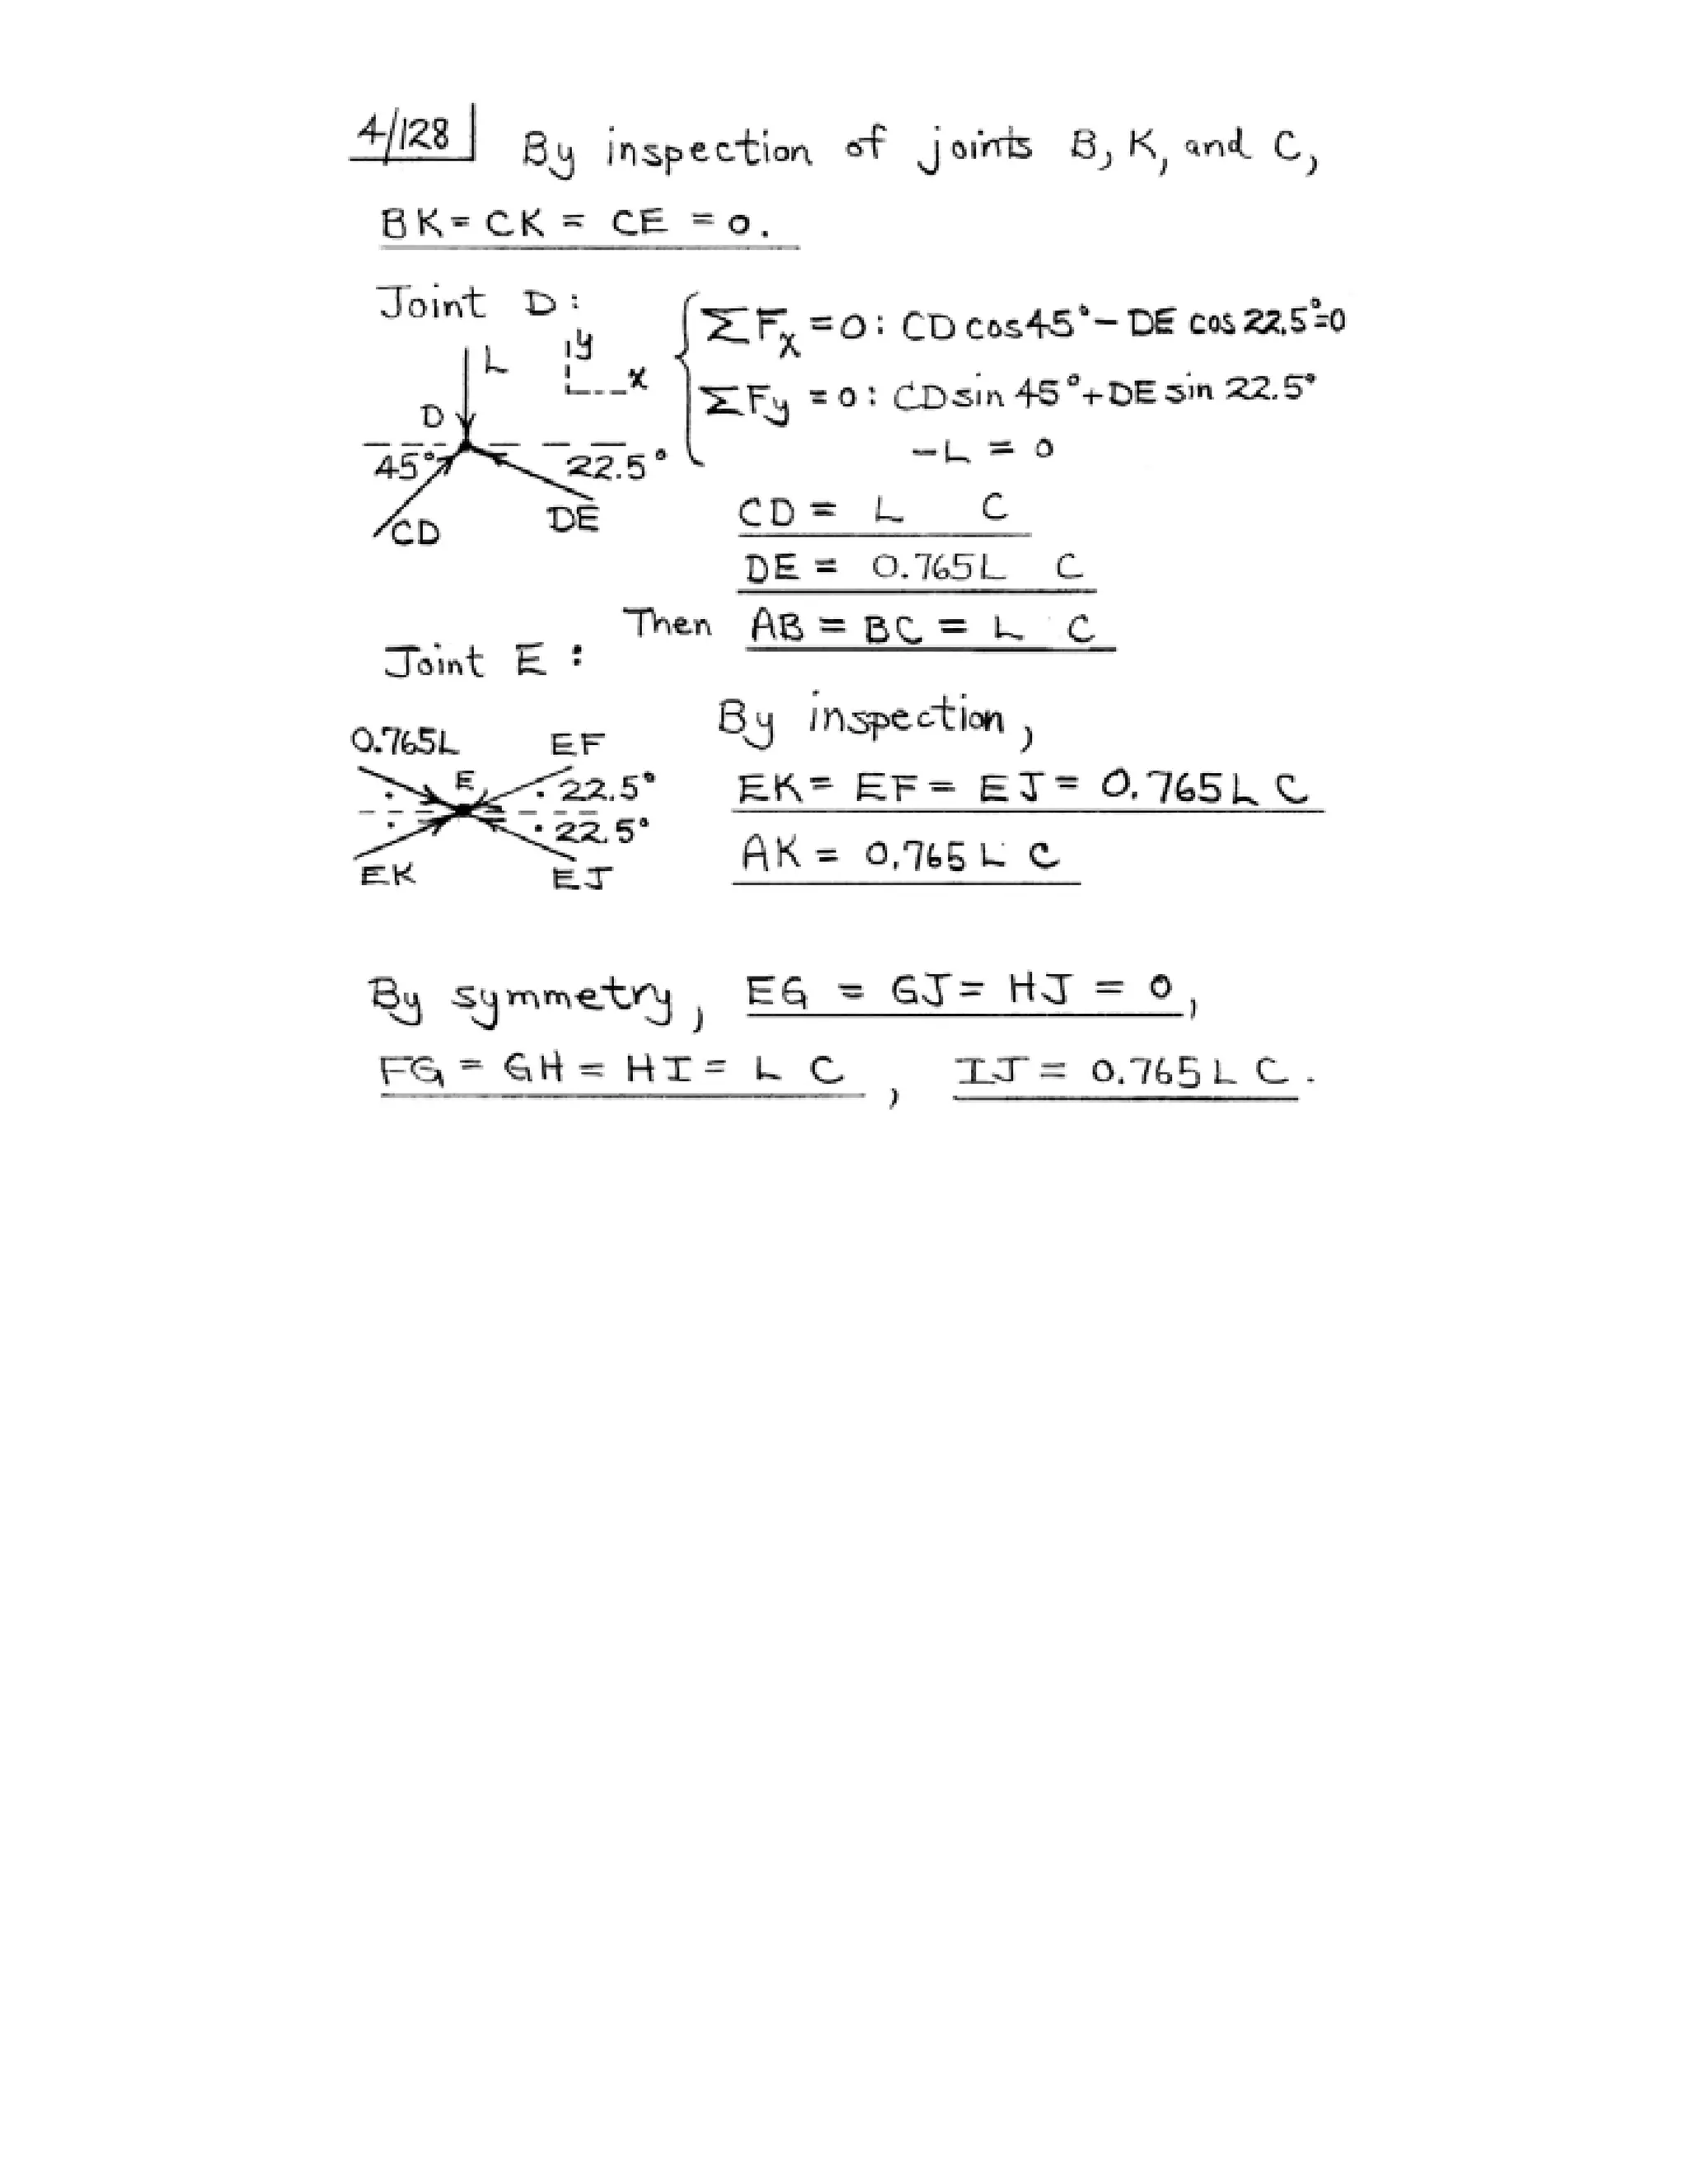 4/128 By inspection of joints B, K, and C,
BK = CK = CE = 0.
Joint D:
L
y
x
D
45°
22.5°
CD
DE
ΣFx = 0: CD cos 45° - DE cos 22.5° = 0
ΣFy = 0: CD sin 45° + DE sin 22.5°
-L = 0
CD = L C
DE = 0.765L C
Then AB = BC = L C
Joint E:
0.765L
EF
E
22.5°
22.5°
EK
EJ
By inspection,
EK = EF = EJ = 0.765L C
AK = 0.765L C
By symmetry, EG = GJ = HJ = 0,
FG = GH = HI = L C, IJ = 0.765L C.